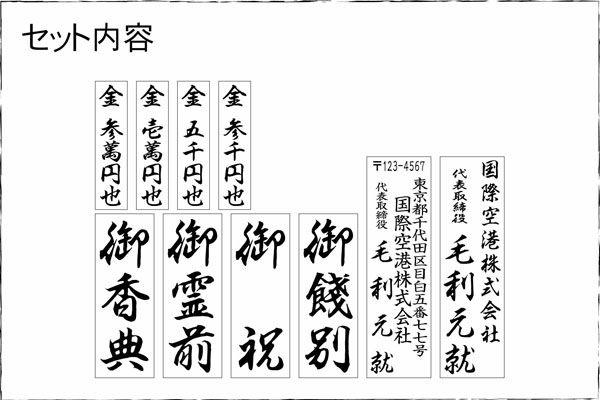 セット内容
金 参萬円也
金 壱萬円也
金 五千円也
金 参千円也
御香典
御霊前
御祝
御餞別
〒123-4567
東京都千代田区目白五番七七号
国際空港株式会社
代表取締役 毛利元就
国際空港株式会社
代表取締役 毛利元就